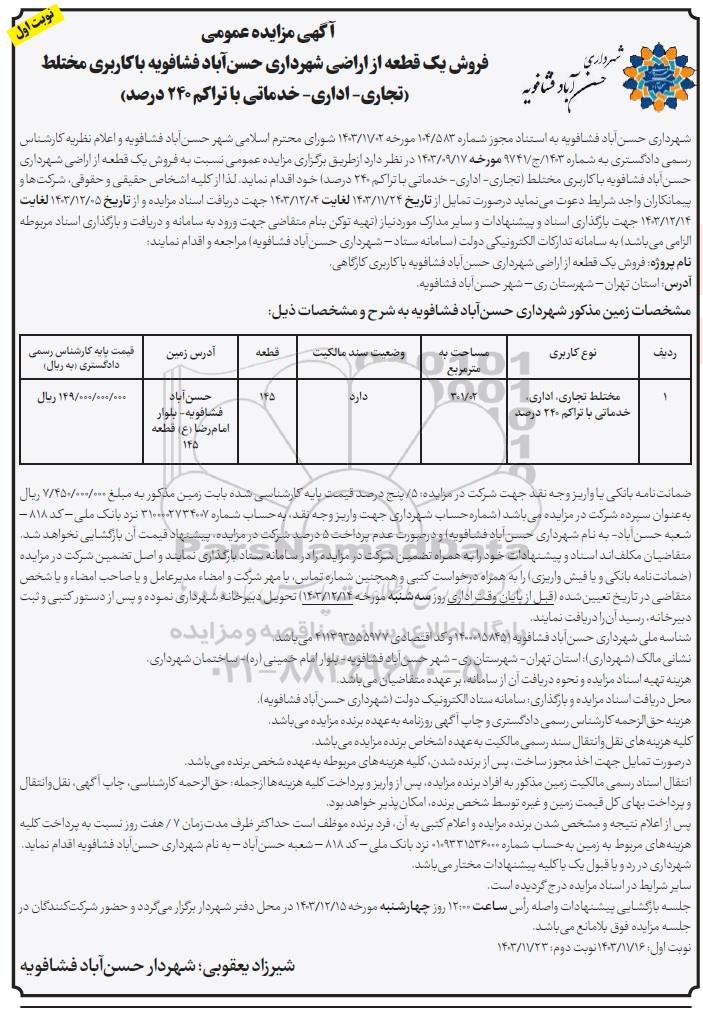 نوبت اول
آگهی مزایده عمومی
فروش یک قطعه از اراضی شهرداری حسن‌آباد فشافویه با کاربری مختلط
(تجاری- اداری- خدماتی با تراکم ۲۴۰ درصد)
شهرداری
حسن آباد فشافویه
شهرداری حسن‌آباد فشافویه به استناد مجوز شماره ۱۰۴/۵۸۳ مورخه ۱۴۰۳/۱۱/۰۲ شورای محترم اسلامی شهر حسن‌آباد فشافویه و اعلام نظریه کارشناس
رسمی دادگستری به شماره ۱۴۰۳/ج/۹۷۴۱ مورخه ۱۴۰۳/۰۹/۱۷ در نظر دارد ازطریق برگزاری مزایده عمومی نسبت به فروش یک قطعه از اراضی شهرداری
حسن‌آباد فشافویه با کاربری مختلط (تجاری- اداری- خدماتی با تراکم ۲۴۰ درصد) خود اقدام نماید. لذا از کلیه اشخاص حقیقی و حقوقی، شرکت‌ها و
پیمانکاران واجد شرایط دعوت می‌نماید درصورت تمایل از تاریخ ۱۴۰۳/۱۱/۲۴ لغایت ۱۴۰۳/۱۲/۰۴ جهت دریافت اسناد مزایده و از تاریخ ۱۴۰۳/۱۲/۰۵ لغایت
۱۴۰۳/۱۲/۱۴ جهت بارگذاری اسناد و پیشنهادات و سایر مدارک موردنیاز (تهیه توکن بنام متقاضی جهت ورود به سامانه و دریافت و بارگذاری اسناد مربوطه
الزامی می‌باشد) به سامانه تدارکات الکترونیکی دولت (سامانه ستاد – شهرداری حسن‌آباد فشافویه) مراجعه و اقدام نمایند:
نام پروژه: فروش یک قطعه از اراضی شهرداری حسن‌آباد فشافویه با کاربری کارگاهی.
آدرس: استان تهران – شهرستان ری – شهر حسن‌آباد فشافویه.
مشخصات زمین مذکور شهرداری حسن‌آباد فشافویه به شرح و مشخصات ذیل:
ردیف نوع کاربری مساحت به مترمربع وضعیت سند مالکیت قطعه آدرس زمین قیمت پایه کارشناس رسمی دادگستری (به ریال)
۱ مختلط تجاری، اداری، خدماتی با تراکم ۲۴۰ درصد ۳۰۱/۰۲ دارد ۱۴۵ حسن‌آباد فشافویه- بلوار امام‌رضا (ع) قطعه ۱۴۵ ۱۴۹/۰۰۰/۰۰۰/۰۰۰ ریال
ضمانت‌نامه بانکی یا واریز وجه نقد جهت شرکت در مزایده: ۵/ پنج درصد قیمت پایه کارشناسی شده بابت زمین مذکور به مبلغ ۷/۴۵۰/۰۰۰/۰۰۰ ریال
به‌عنوان سپرده شرکت در مزایده می‌باشد (شماره حساب شهرداری جهت واریز وجه نقد، به حساب شماره ۳۱۰۰۰۰۲۷۳۴۰۰۷ نزد بانک ملی – کد ۸۱۸ –
شعبه حسن‌آباد- به نام شهرداری حسن‌آباد فشافویه) و درصورت عدم پرداخت ۵ درصد شرکت در مزایده، پیشنهاد قیمت آن بازگشایی نخواهد شد.
متقاضیان مکلف‌اند اسناد و پیشنهادات خود را به همراه تضمین شرکت در مزایده را در سامانه ستاد بارگذاری نمایند و اصل تضمین شرکت در مزایده
(ضمانت‌نامه بانکی و یا فیش واریزی) را به همراه درخواست کتبی و همچنین شماره تماس، با مهر شرکت و امضاء مدیرعامل و یا صاحب امضاء و یا شخص
متقاضی در تاریخ تعیین‌شده (قبل از پایان وقت اداری روز سه‌شنبه مورخه ۱۴۰۳/۱۲/۱۴) تحویل دبیرخانه شهرداری نموده و پس از دستور کتبی و ثبت
دبیرخانه، رسید آن‌را دریافت نمایند.
شناسه ملی شهرداری حسن‌آباد فشافویه (۱۴۰۰۰۰۱۵۸۴۵) و کد اقتصادی ۴۱۱۳۹۳۵۵۵۹۷۷ می‌باشد.
نشانی مالک (شهرداری): استان تهران- شهرستان ری- شهر حسن‌آباد فشافویه- بلوار امام خمینی (ره)- ساختمان شهرداری.
هزینه تهیه اسناد مزایده و نحوه دریافت آن از سامانه، بر عهده متقاضیان می‌باشد.
محل دریافت اسناد مزایده و بارگذاری: سامانه ستاد الکترونیک دولت (شهرداری حسن‌آباد فشافویه).
هزینه حق‌الزحمه کارشناس رسمی دادگستری و چاپ آگهی روزنامه به‌عهده برنده مزایده می‌باشد.
کلیه هزینه‌های نقل‌وانتقال سند رسمی مالکیت به‌عهده اشخاص برنده مزایده می‌باشد.
درصورت تمایل جهت اخذ مجوز ساخت، پس از برنده شدن، کلیه هزینه‌های مربوطه به‌عهده شخص برنده می‌باشد.
انتقال اسناد رسمی مالکیت زمین مذکور به افراد برنده مزایده، پس از واریز و پرداخت کلیه هزینه‌ها ازجمله: حق‌الزحمه کارشناسی، چاپ آگهی، نقل‌وانتقال
و پرداخت بهای کل قیمت زمین و غیره توسط شخص برنده، امکان‌پذیر خواهد بود.
پس از اعلام نتیجه و مشخص شدن برنده مزایده و اعلام کتبی به آن، فرد برنده موظف است حداکثر ظرف مدت‌زمان ۷ / هفت روز نسبت به پرداخت کلیه
هزینه‌های مربوط به زمین به‌حساب شماره ۰۱۰۹۳۳۱۵۳۶۰۰۰ نزد بانک ملی – کد ۸۱۸ – شعبه حسن‌آباد – به نام شهرداری حسن‌آباد فشافویه اقدام نماید.
شهرداری در رد و یا قبول یک یا کلیه پیشنهادات مختار می‌باشد.
سایر شرایط در اسناد مزایده درج گردیده است.
جلسه بازگشایی پیشنهادات واصله رأس ساعت ۱۲:۰۰ روز چهارشنبه مورخه ۱۴۰۳/۱۲/۱۵ در محل دفتر شهردار برگزار می‌گردد و حضور شرکت‌کنندگان در
جلسه مزایده فوق بلامانع می‌باشد.
نوبت اول: ۱۴۰۳/۱۱/۱۶ نوبت دوم: ۱۴۰۳/۱۱/۲۳
شیرزاد یعقوبی؛ شهردار حسن‌آباد فشافویه
ParsNamadData
پایگاه اطلاع رسانی مناقصه و مزایده
۰۲۱-۸۸۳۴۹۶۷۰-۵